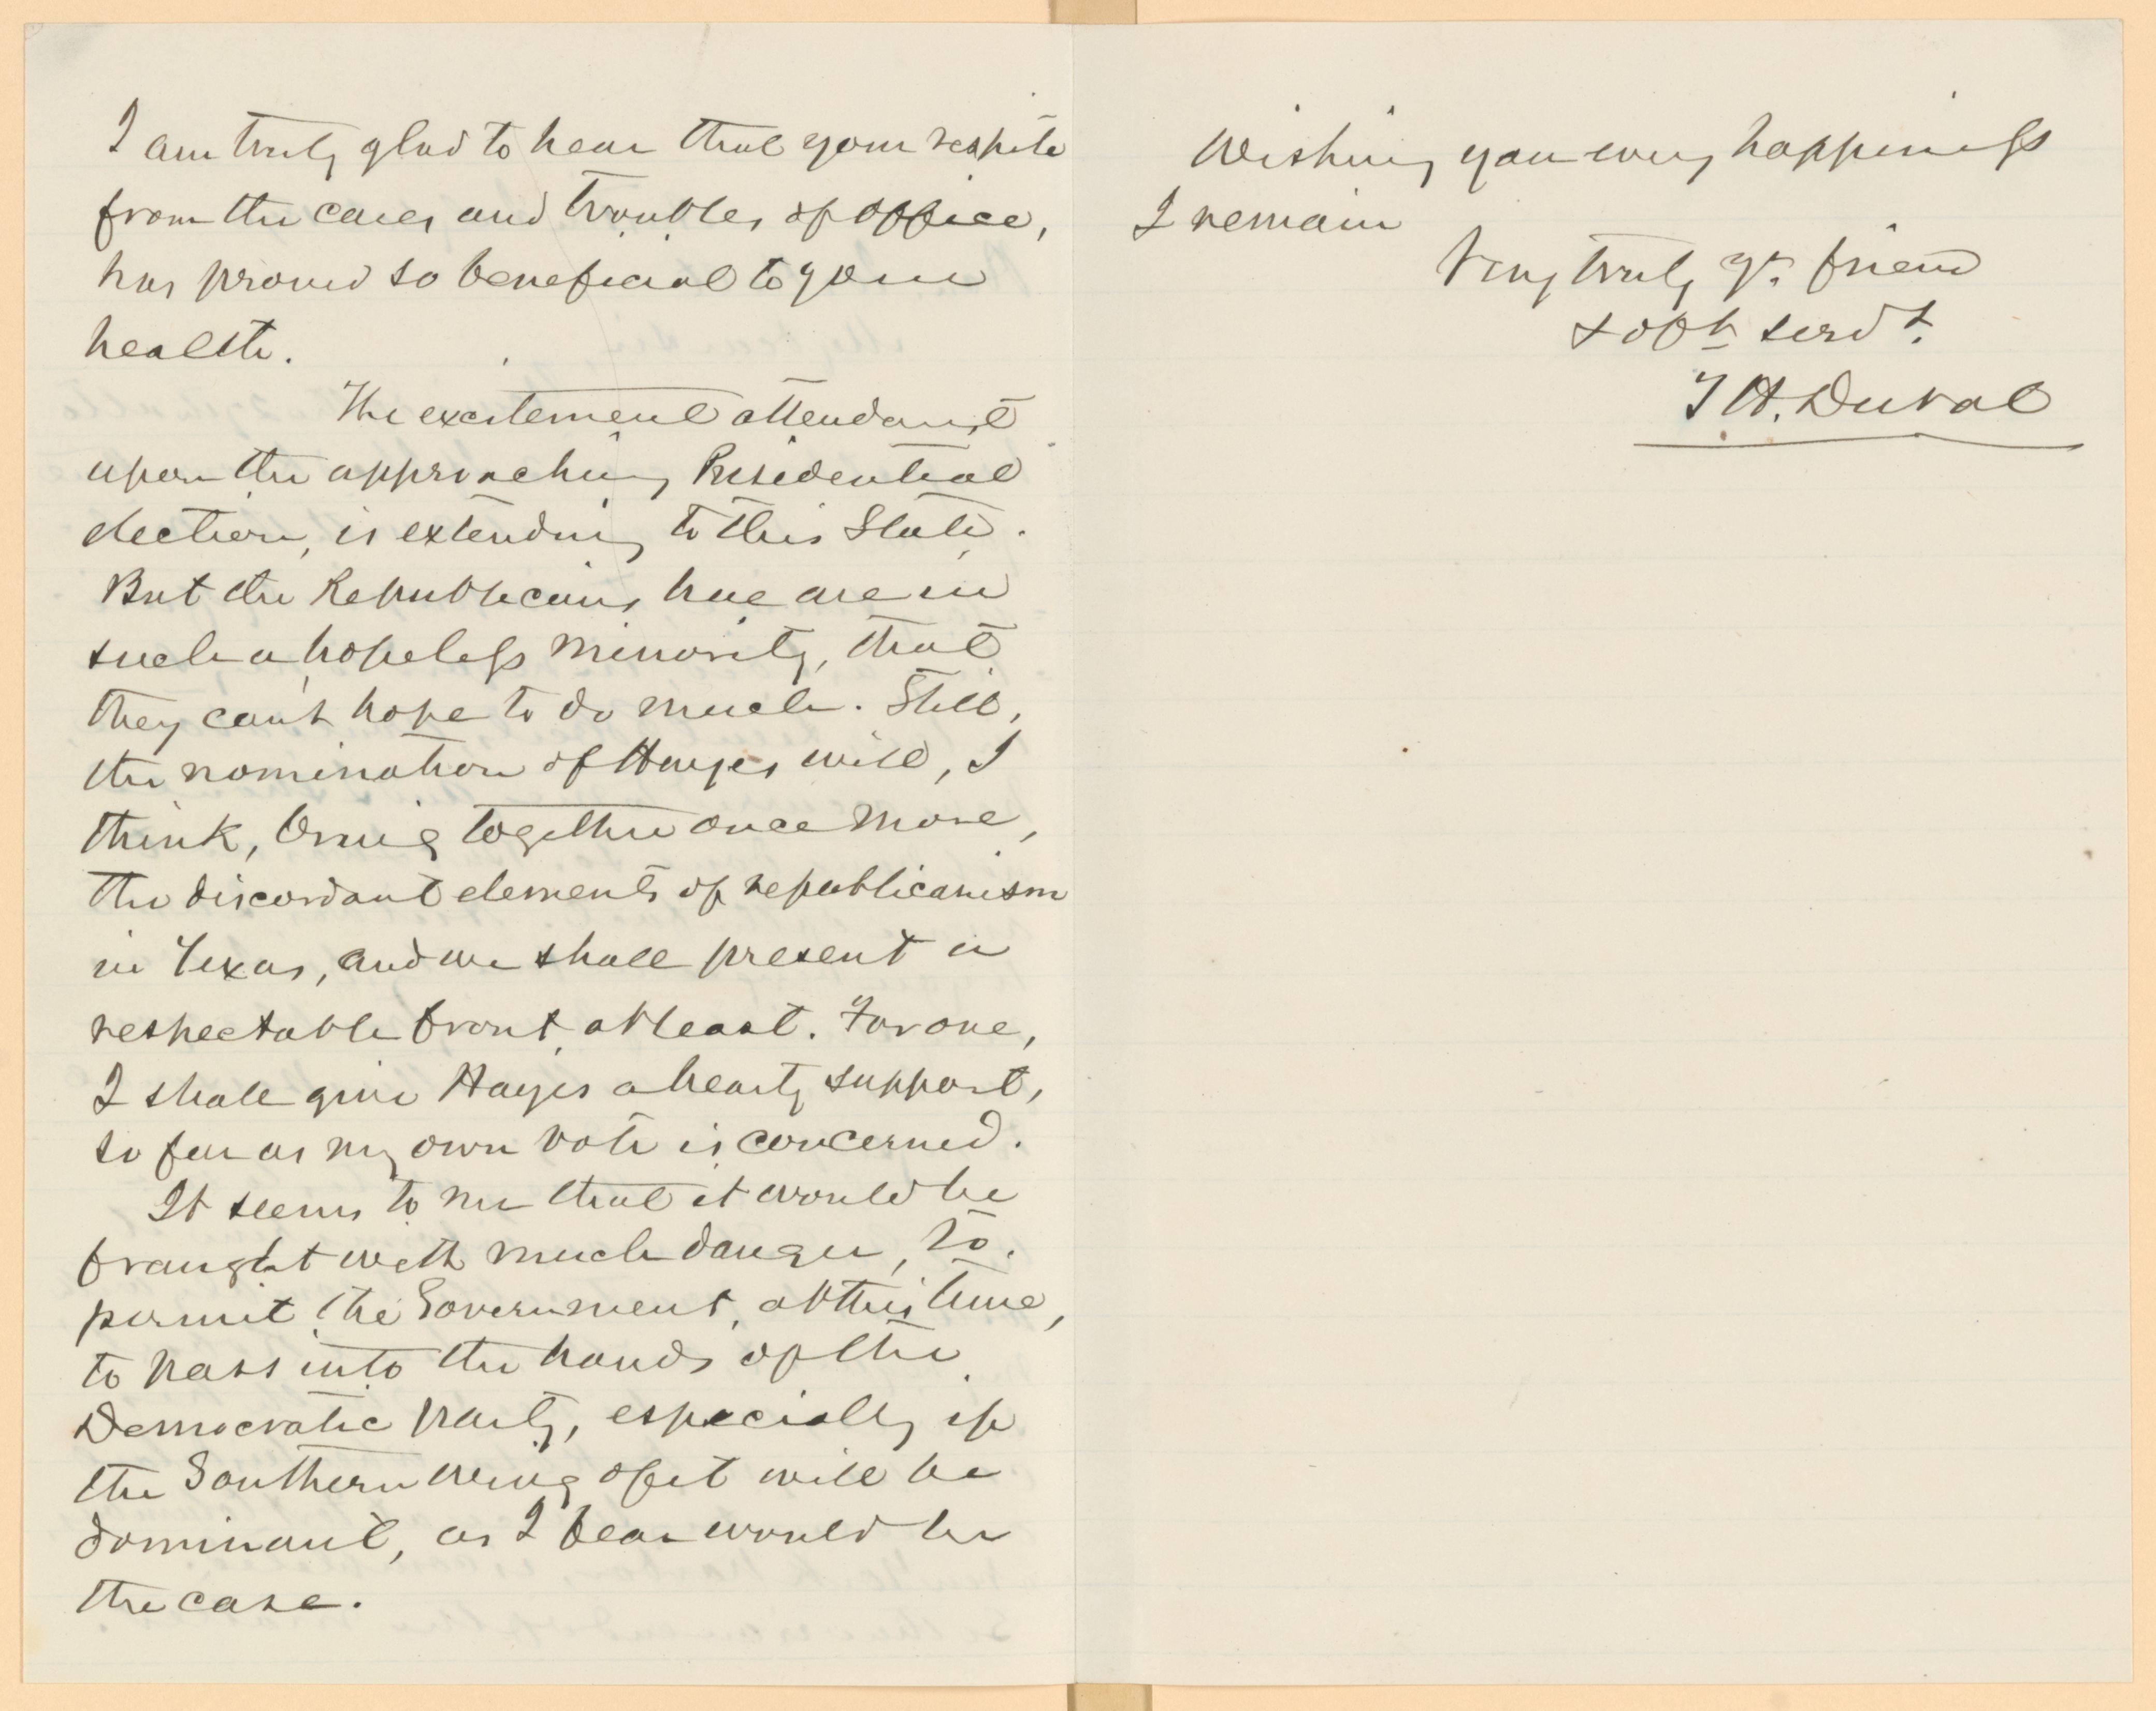 I am truly glad to hear that your respite
from the cares and troubles of office,
has proved so beneficial to your
health.
The excitement attendant
upon the approaching Presidential
election, is extending to this State.
But the Republicans here are in
such a hopeless minority, that
they can't hope to do much. Still,
the nomination of Hayes will, I
think, bring together once more,
the discordant elements of republicanism
in Texas, and we shall present a
respectable front, at least. For one,
I shall give Hayes a hearty support,
so far as my own vote is concerned.
It seems to me that it would be
fraught with much danger, to
permit the Government, at this time,
to pass into the hands of the
Democratic party, especially if
the Southern wing of it will be
dominant, as I fear would be
the case.
Wishing you every happiness
I remain
Very truly yr. friend
& obt servt.
T H. Duval